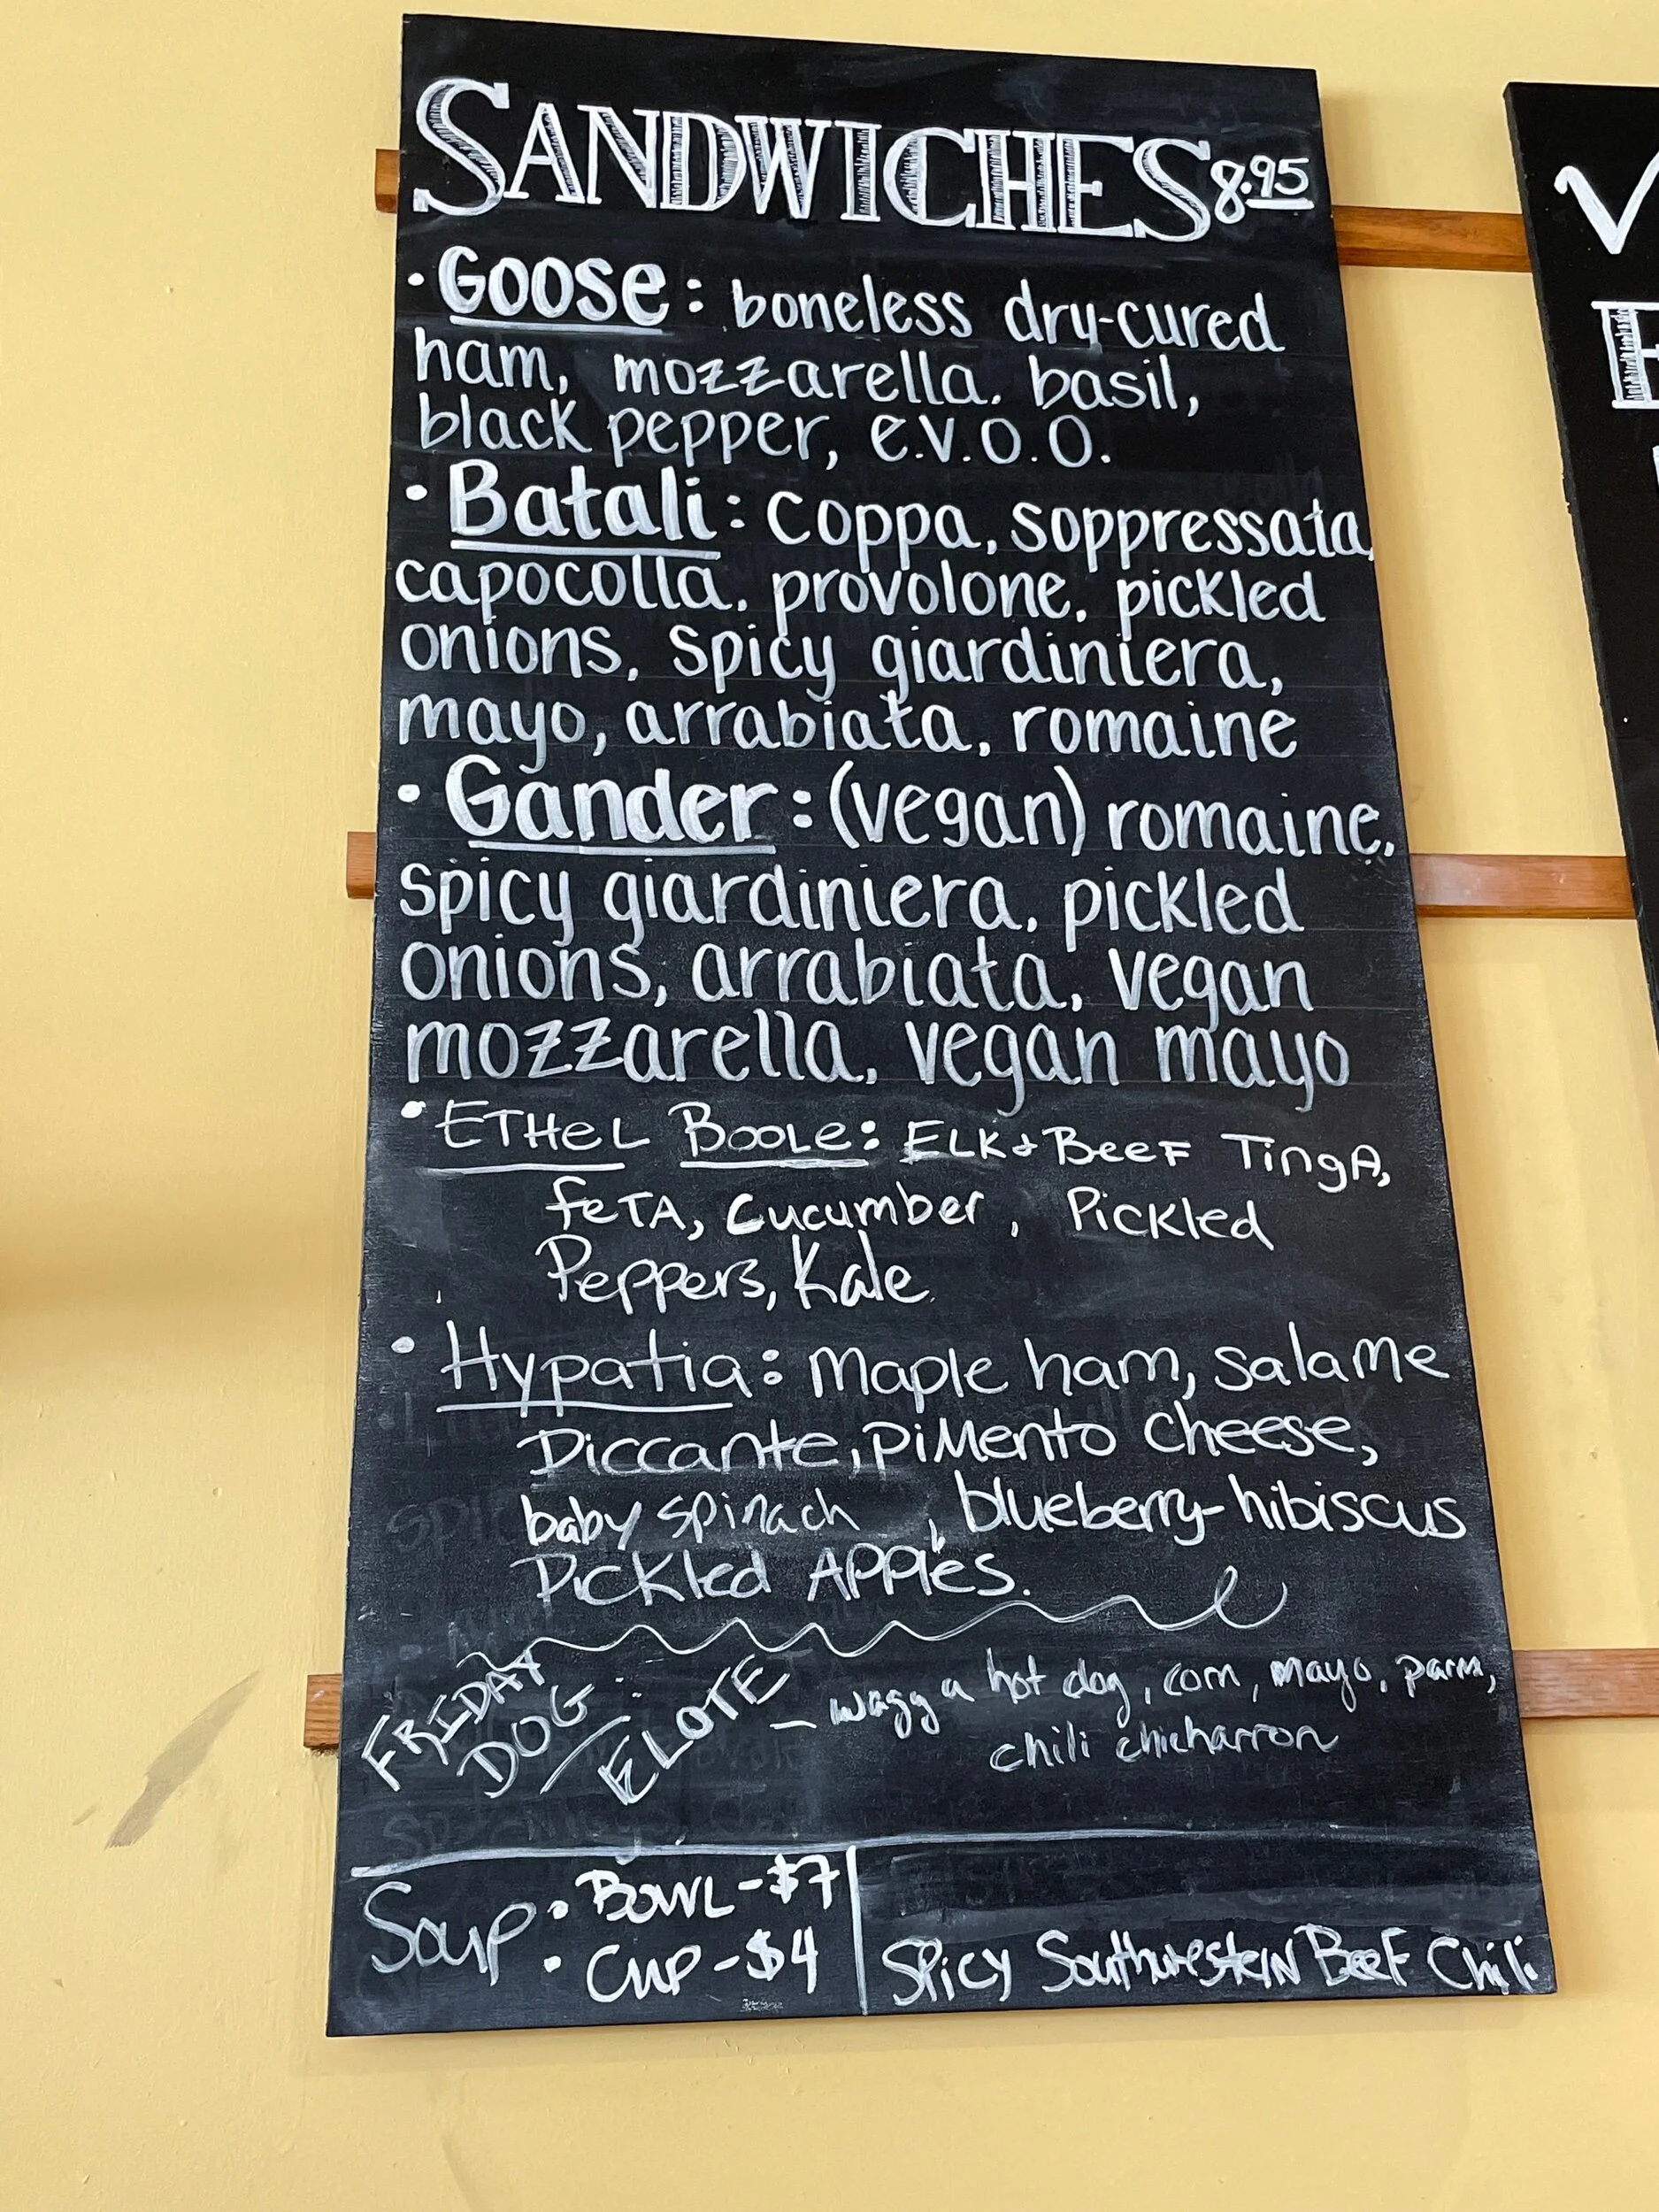 SANDWICHES 8.95
• Goose: boneless dry-cured
ham, mozzarella, basil,
black pepper, e.v.o.o.
• Batali: Coppa, soppressata,
capocolla, provolone, pickled
onions, spicy giardiniera,
mayo, arrabiata, romaine
• Gander: (vegan) romaine,
spicy giardiniera, pickled
onions, arrabiata, vegan
mozzarella, vegan mayo
• ETHeL BooLe: ELK + BeeF TingA,
feTA, Cucumber, Pickled
Peppers, Kale
• Hypatia: Maple ham, Salame
Piccante, piMento cheese,
baby spinach, blueberry-hibiscus
Pickled Apples.
FRIDAY
DOG:
ELOTE – wagg a hot dog, corn, mayo, parm,
chili chicharron
Soup • BOWL - $7
• CUP - $4
SPicy Southwestern BeeF Chili